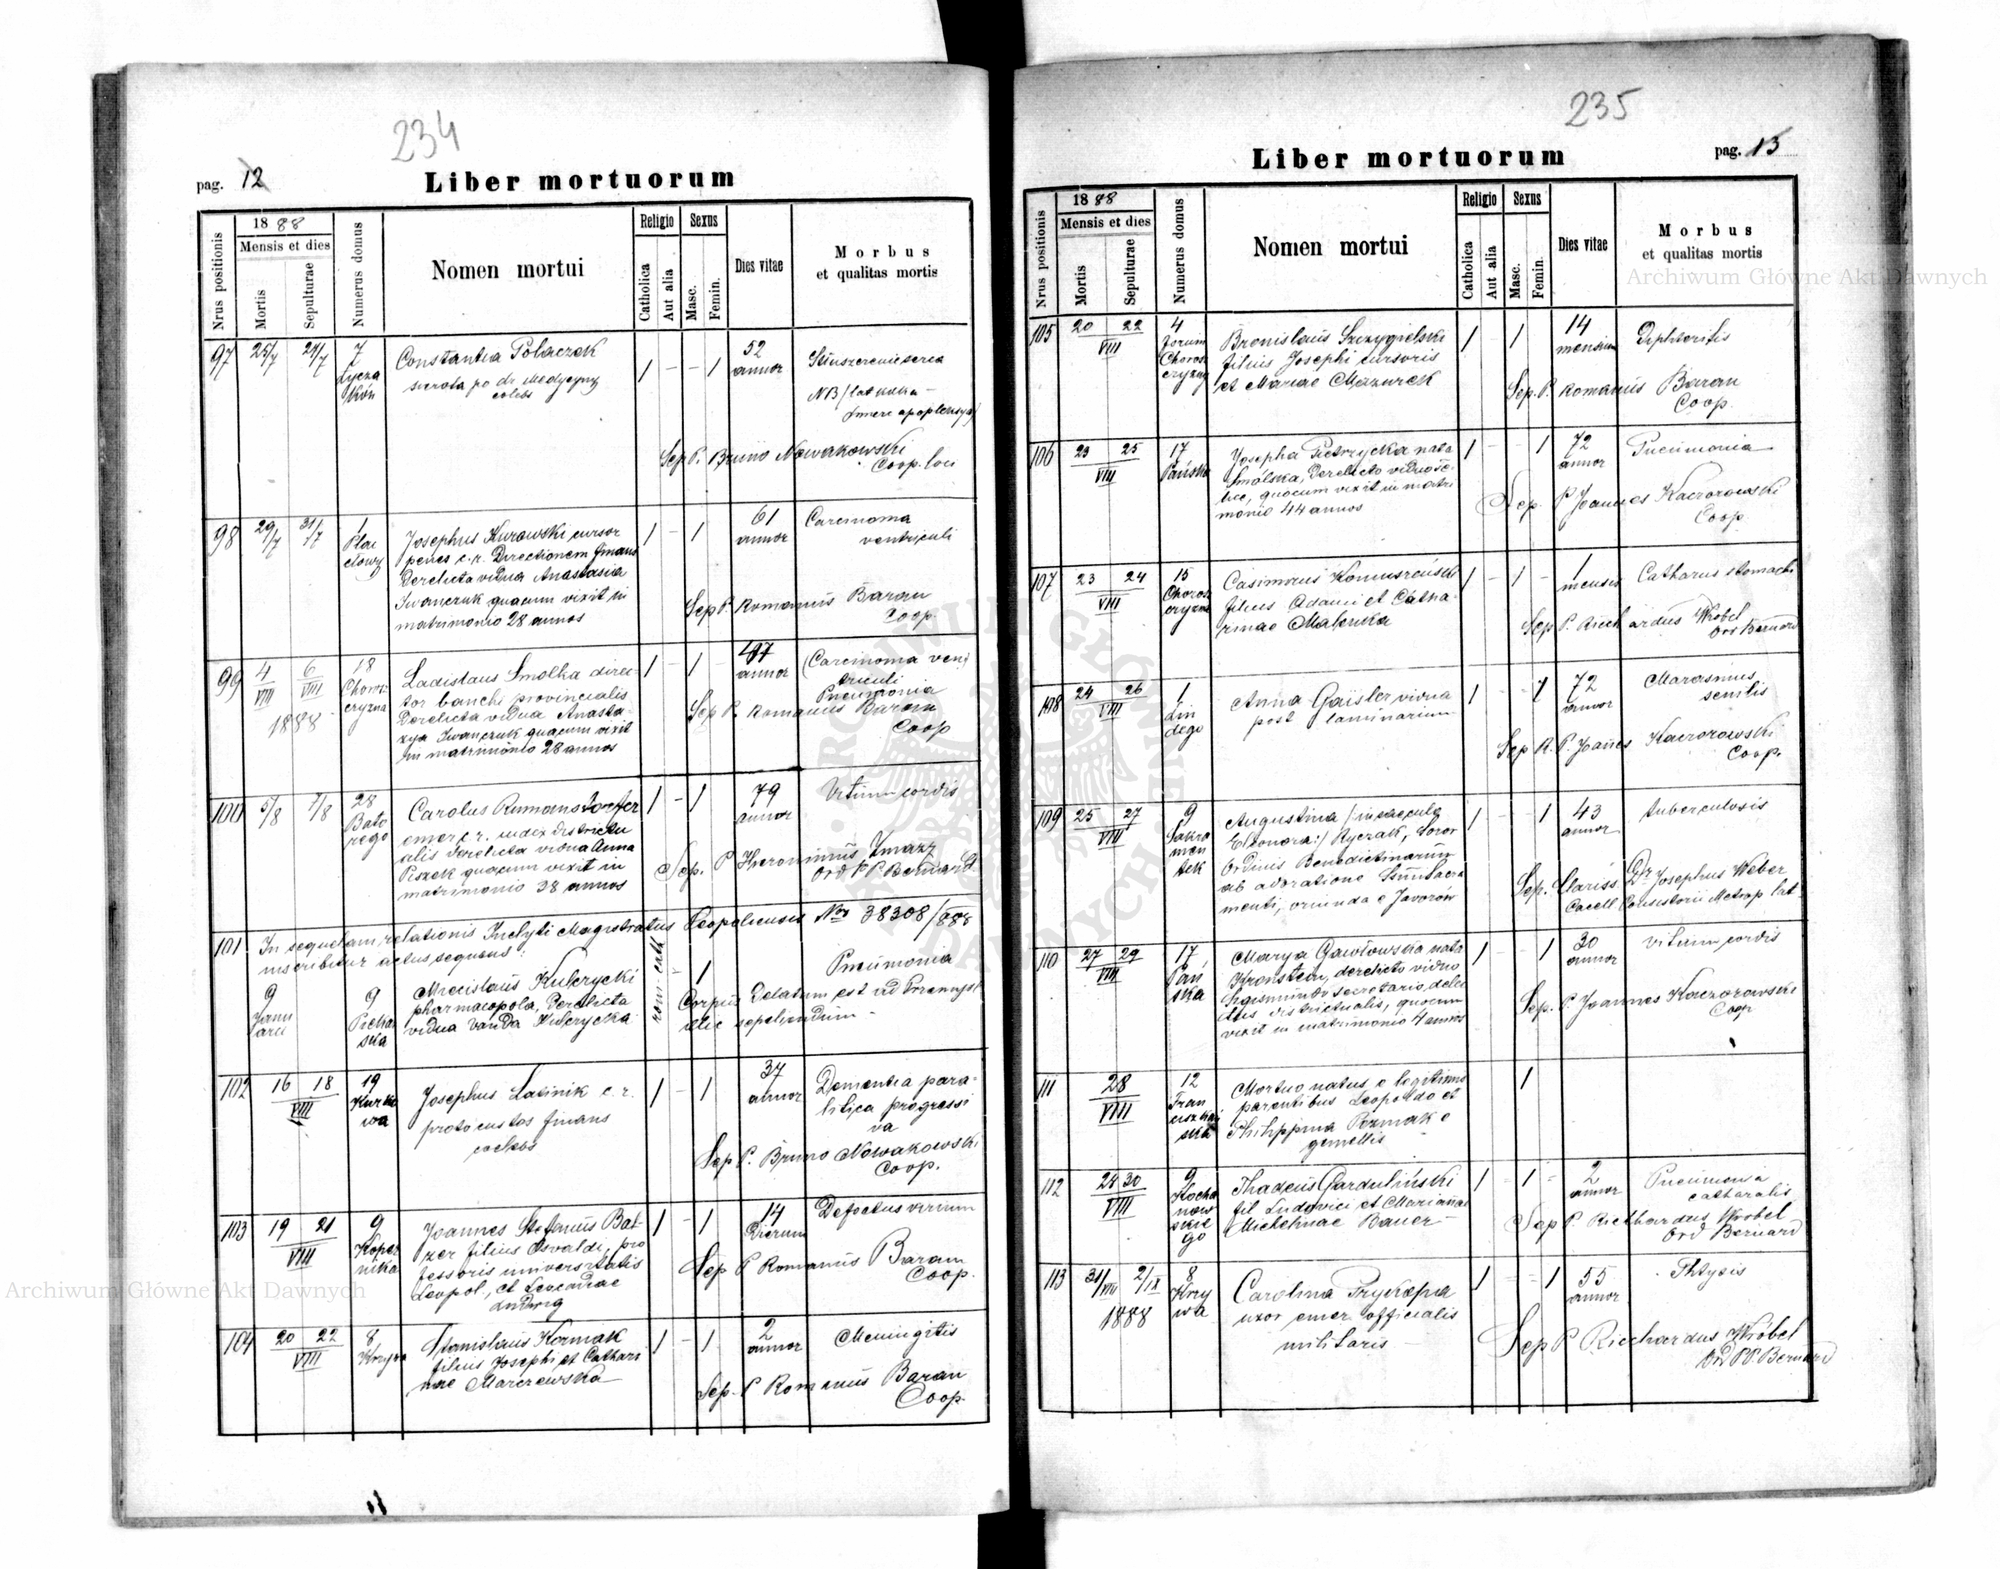 234
pag. 12
Liber mortuorum
Nrus positionis
1888
Mensis et dies
Mortis
Sepulturae
Numerus domus
Nomen mortui
Religio
Catholica
Aut alia
Sexus
Masc.
Femin.
Dies vitae
Morbus
et qualitas mortis
97 25/7 27/7 7 Constantia Polaczek 1 - - 1 52
Łycza sierota po dr Medycyny annor
ków
Sep P. Bruno Nowakowski
Coop. loci
98 29/7 31/7 1 Josephus Kurowski cursor 1 - 1 61 Carcinoma
penes c.r. Directionem finans annor ventriculi
Derelicta vidua Anastasia
Iwanczuk quacum vixit in
matrimonio 28 annos
Sep P. Romanus Baran
Coop.
99 4 6 18 Ladislaus Smolka direc- 1 - 1 - 47 (Carcinoma ven)
VIII VIII Chorosz tor banchi provincialis annor triculi
1888 czyzna Derelicta vidua Anasta- Pneumonia
zya Iwanczuk quacum vixit
in matrimonio 28 annos
Sep P. Romanus Baran
Coop
100 5/8 7/8 28 Carolus Romans 1 - 1 79 Vitium cordis
Bato emer c.r. iudex districtu annor
rego alis Derelicta vidua Anna
quacum vixit in
matrimonio 38 annos
Sep. P Hieronimus
Ord P P Bernard
101 In sequelam relationis Inclyti Magistratus Leopoliensis Nro 38308/888
inscribitur actus sequens:
9 9 Miecislaus Kulczycki rom: cath 1 Pneumonia
Janu Piekar pharmacopola, Derelicta
arii ska vidua Vanda Kulczycka
Corpus Delatum est ad
illic sepeliendum -
102 16 18 19 Josephus Latinik c. r. 1 - 1 37 Dementia para-
VIII Kurko protocustos finans annor litica progressi
wa coelebs va
Sep P. Bruno Nowakowski
Coop.
103 19 21 9 Joannes Stefanus Bal- 1 - 1 14 Defectus virium
VIII Koper zer filius Osvaldi, pro Dierum
nika fessoris universitatis
Leopol, et Leocadiae
Ludwig
Sep P Romanus Baran
Coop.
104 20 22 8 Stanislaus Kozniak 1 - 1 2 Meningitis
VIII Krzywa filius Josephi et Cathari annor
nae Marczewska
Sep. P Romanus Baran
Coop.
235
Liber mortuorum
pag. 13
Nrus positionis
1888
Mensis et dies
Mortis
Sepulturae
Numerus domus
Nomen mortui
Religio
Catholica
Aut alia
Sexus
Masc.
Femin.
Dies vitae
Morbus
et qualitas mortis
105 20 22 4 Bronislaus Szczygielski 1 1 14 Diphteritis
VIII forum filius Josephi cursoris mensium
Chorosz et Mariae Mazurek
czyzny
Sep. P. Romanus Baran
Coop.
106 23 25 17 Josepha Pietrzycka nata 1 - - 1 72 Pneumonia
VIII Pańska Smólska, Derelicto viduo annor
quocum vixit in matri
monio 44 annos
Sep. P Joannes Kaczorowski
Coop
107 23 24 15 Casimirus 1 - 1 - 1 Catharus stomachi
VIII Chorosz filius Adami et Catha- mensis
czyzna rinae Malenka
Sep P. Richardus Wróbel
Ord Bernard
108 24 26 1 Anna Gaisler vidua 1 - - 1 72 Marasmus
VIII Lin post annor senilis
dego
Sep R. P. Joannes Kaczorowski
Coop.
109 25 27 9 Augustina /in saeculo 1 - - 1 43 tuberculosis
VIII Sakra Eleonora:/ Ryczak, Soror annor
men Ordinis Benedictinarum
tek ab adoratione Ssmi Sacra
menti, oriunda e Javorów
Sep. Clariss. Dr Josephus Weber
Cancell Consistorii Metrop lat
110 27 29 17 Marya Gawłowska nata 1 - - 1 30 Vitium cordis
VIII Pań Kronstein, derelicto viduo annor
ska Sigismundo secretario delec
tus districtualis, quocum
vixit in matrimonio 4 annos
Sep. P. Joannes Kaczorowski
Coop
111 28 12 Mortuo natus e legitimis 1
VIII Fran parentibus Leopoldo et
ciszkań Philippina Pozniak e
ska gemellis
112 28 30 9 Thadeus Gardulinski 1 - 1 - 2 Pneumonia
VIII Kocha fil Ludovici et Marianae annor catharalis
now Michelinae Bauer
skie
go
Sep P. Richardus Wróbel
Ord Bernard
113 31/VIII 2/IX 8 Carolina Przykopa 1 - - 1 55 Phtysis
1888 Krzy uxor emer officialis annor
wa militaris
Sep P Richardus Wróbel
Ord P.P. Bernard
Archiwum Główne Akt Dawnych
Archiwum Główne Akt Dawnych